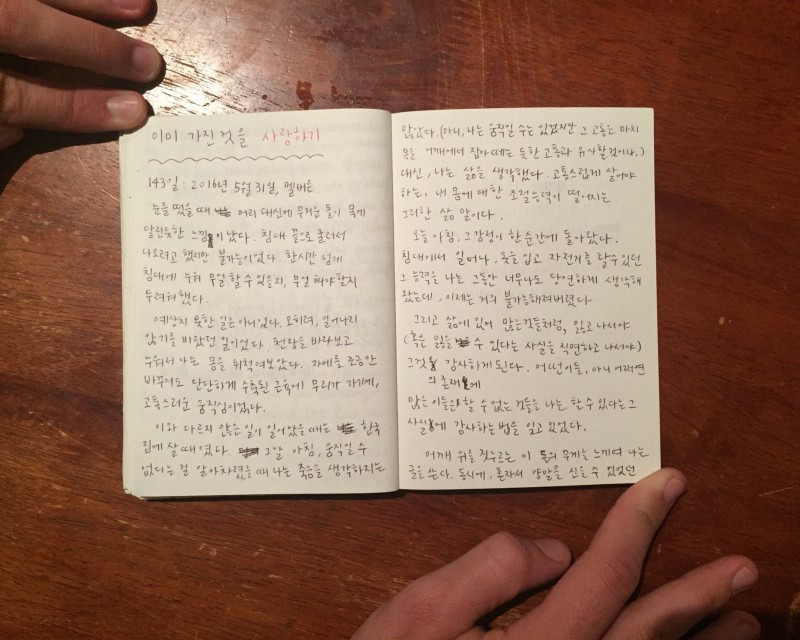 이미 가진것을 사랑하기
143일 : 2016년 5월 31일, 멜버른
눈을 떴을 때 머리 대신에 무거운 돌이 목에
달린듯한 느낌이 났다. 침대 끝으로 굴러서
나오려고 했지만 불가능이었다. 한시간 넘게
침대에 누워 무얼 할 수 있을지, 무얼 해야할지
두려워했다.
예상치 못한 일은 아니었다. 오히려, 일어나지
않기를 바랐던 일이었다. 천장을 바라보고
누워서 나는 몸을 뒤척여보았다. 자세를 조금만
바꾸어도 단단하게 수축된 근육에 무리가 가기에,
고통스러운 움직임이었다.
이와 다르지 않은 일이 일어났을때는 한국
집에 살 때였다. 그날 아침, 움직일 수
없다는 걸 알아차렸을 때 나는 죽음을 생각하지는
않았다. (아니, 나는 움직일 수는 있었지만 그 고통은 마치
목을 어깨에서 잡아 떼는 듯한 고통과 유사할것이다.)
대신, 나는 삶을 생각했다. 고통스럽게 살아야
하는, 내 몸에 대한 조절능력이 떨어지는
그러한 삶 말이다.
오늘 아침, 그 감정이 한순간에 돌아왔다.
침대에서 일어나, 옷을 입고 자전거를 탈수있던
그 능력을 나는 그동안 너무나도 당연하게 생각해
왔는데, 이제는 거의 불가능해져버렸다.
그리고 삶에 있어 많은것들처럼, 잃고 나서야
(혹은 잃을 수 있다는 사실을 직면하고 나서야)
그것에 감사하게 된다. 어떤이들, 아니 어쩌면
의 존재에
많은 이들은 할 수 없는 것들을 나는 할 수 있다는 그
사실에 감사하는 법을 잊고 있었다.
어깨 위를 짓누르는 이 돌의 무게를 느끼며 나는
글을 쓴다. 동시에, 혼자서 양말을 신을 수 있었던